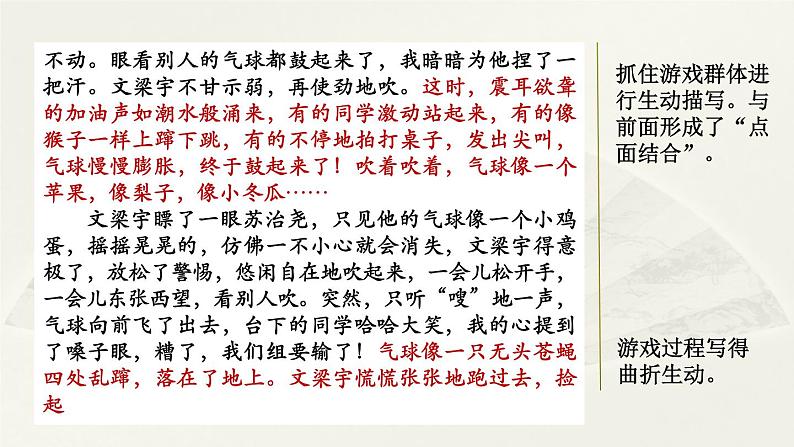 不动。眼看别人的气球都鼓起来了，我暗暗为他捏了一
把汗。文梁宇不甘示弱，再使劲地吹。这时，震耳欲聋
的加油声如潮水般涌来，有的同学激动站起来，有的像
猴子一样上蹿下跳，有的不停地拍打桌子，发出尖叫，
气球慢慢膨胀，终于鼓起来了！吹着吹着，气球像一个
苹果，像梨子，像小冬瓜……
文梁宇瞟了一眼苏治尧，只见他的气球像一个小鸡
蛋，摇摇晃晃的，仿佛一不小心就会消失，文梁宇得意
极了，放松了警惕，悠闲自在地吹起来，一会儿松开手，
一会儿东张西望，看别人吹。突然，只听“嗖”地一声，
气球向前飞了出去，台下的同学哈哈大笑，我的心提到
了嗓子眼，糟了，我们组要输了！气球像一只无头苍蝇
四处乱蹿，落在了地上。文梁宇慌慌张张地跑过去，捡
起
抓住游戏群体进
行生动描写。与
前面形成了“点
面结合”。
游戏过程写得
曲折生动。